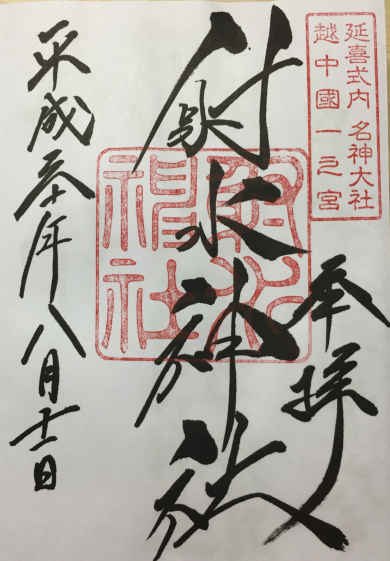 延喜式内 名神大社
越中國一之宮
奉拝
射水神社
射水
神社
平成三十年八月十二日